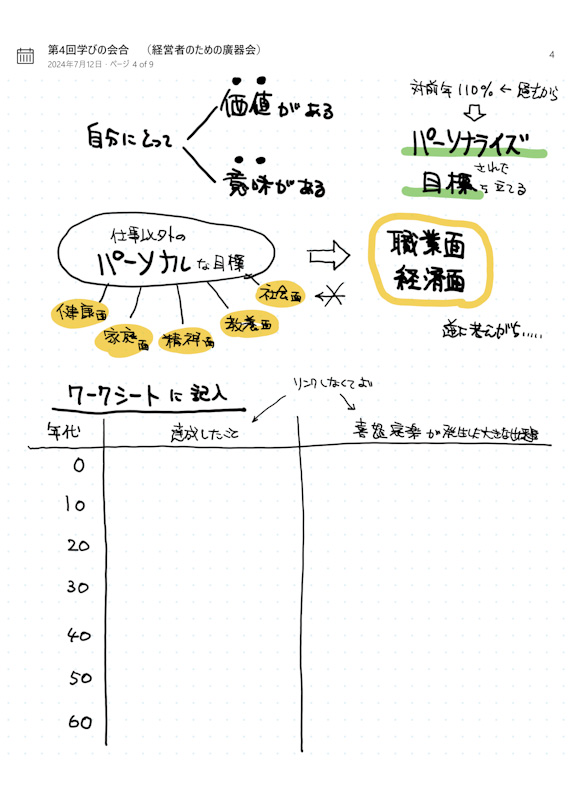 第4回学びの会合 （経営者のための廣器会）
2024年7月12日・ページ 4 of 9
4
自分にとって
価値がある
意味がある
対前年110% ← 過去から
パーソナライズ
された
目標を立てる
仕事以外の
パーソナルな目標
健康面
家庭面
精神面
教養面
社会面
職業面
経済面
逆に考えがち.....
ワークシートに記入
リンクしなくてよい
年代
達成したこと
喜怒哀楽が発生した大きな出来事
0
10
20
30
40
50
60